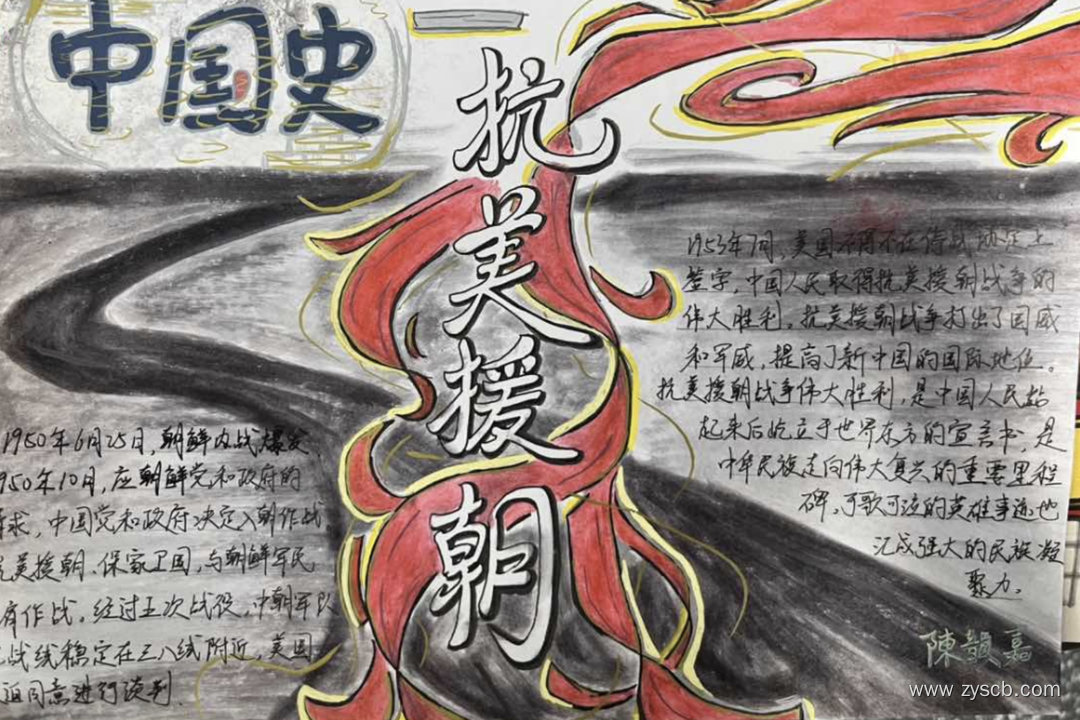 中国史
抗美援朝
1950年6月25日,朝鲜内战爆发,
950年10月,应朝鲜党和政府的
求,中国党和政府决定入朝作战
抗美援朝、保家卫国,与朝鲜军民
肩作战。经过五次战役,中朝军队
战线稳定在三八线附近,美国
迫同意进行谈判
1953年7月,美国不得不在停战协定上
签字,中国人民取得抗美援朝战争的
伟大胜利。抗美援朝战争打出了国威
和军威,提高了新中国的国际地位。
抗美援朝战争伟大胜利,是中国人民站
起来后屹立于世界东方的宣言书,是
中华民族走向伟大复兴的重要里程
碑,可歌可泣的英雄事迹也
汇成强大的民族凝
聚力。
陳韻嘉
www.zyscb.com